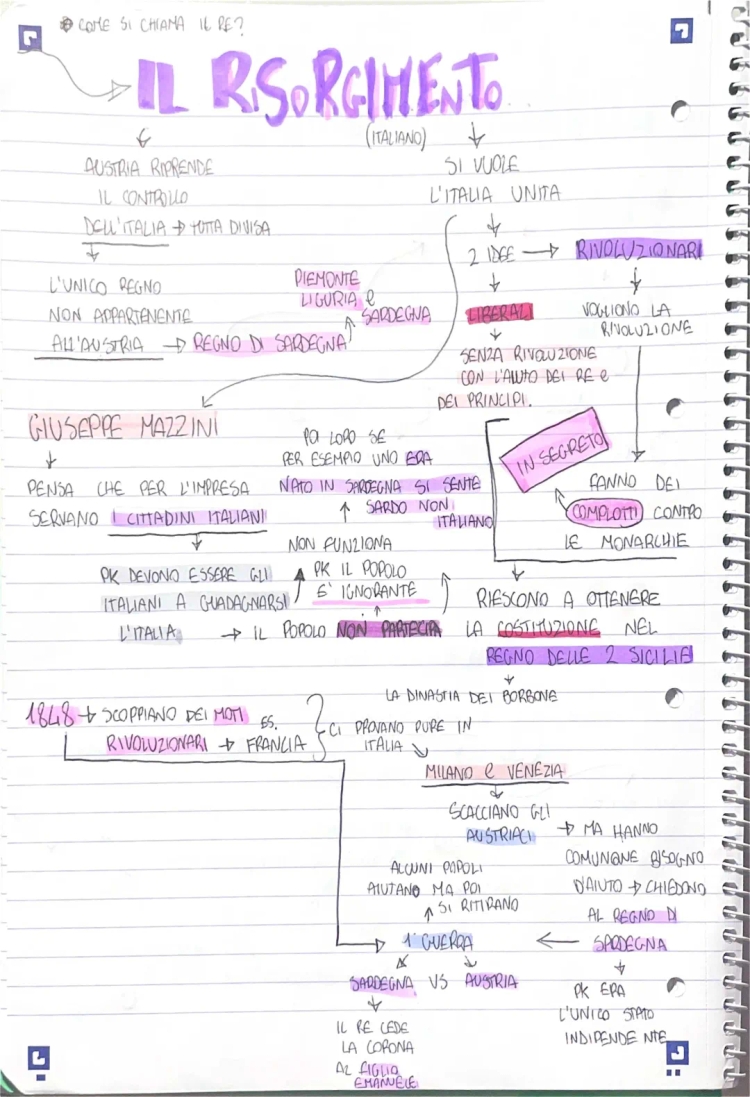 COME SI CHIAMA IL RE?
IL RISORGIMENTO
(ITALIANO)
AUSTRIA RIPRENDE
IL CONTROLLO
DELL'ITALIA → TUTTA DIVISA
L'UNICO REGNO
NON APPARTENENTE
ALL'AUSTRIA → REGNO DI SARDEGNA
PIEMONTE
LIGURIA e
SARDEGNA
SI VUOLE
L'ITALIA UNITA
2 IDEE → RIVOLUZIONARI
LIBERALI
SENZA RIVOLUZIONE
CON L'AIUTO DEI RE e
DEI PRINCIPI.
VOGLIONO LA
RIVOLUZIONE
IN SEGRETO
FANNO DEI
COMPLOTTI CONTRO
LE MONARCHIE
RIESCONO A OTTENERE
LA COSTITUZIONE NEL
REGNO DELLE 2 SICILIE
LA DINASTIA DEI BORBONE
GIUSEPPE MAZZINI
PENSA CHE PER L'IMPRESA
SERVANO I CITTADINI ITALIANI
PK DEVONO ESSERE GLI
ITALIANI A GUADAGNARSI
L'ITALIA → IL POPOLO NON PARTECIPA
PK IL POPOLO
E' IGNORANTE
NON FUNZIONA
POI LORO SE
PER ESEMPIO UNO ERA
NATO IN SARDEGNA SI SENTE
SARDO NON
ITALIANO
1848 → SCOPPIANO DEI MOTI
RIVOLUZIONARI → ES. FRANCIA
CI PROVANO PURE IN
ITALIA
MILANO e VENEZIA
SCACCIANO GLI
AUSTRIACI → MA HANNO
COMUNQUE BISOGNO
D'AIUTO → CHIEDONO
AL REGNO DI
SARDEGNA
PK ERA
L'UNICO STATO
INDIPENDENTE
1° GUERRA
ALCUNI POPOLI
AIUTANO MA POI
SI RITIRANO
SARDEGNA VS AUSTRIA
IL RE CEDE
LA CORONA
AL FIGLIO
EMANUELE